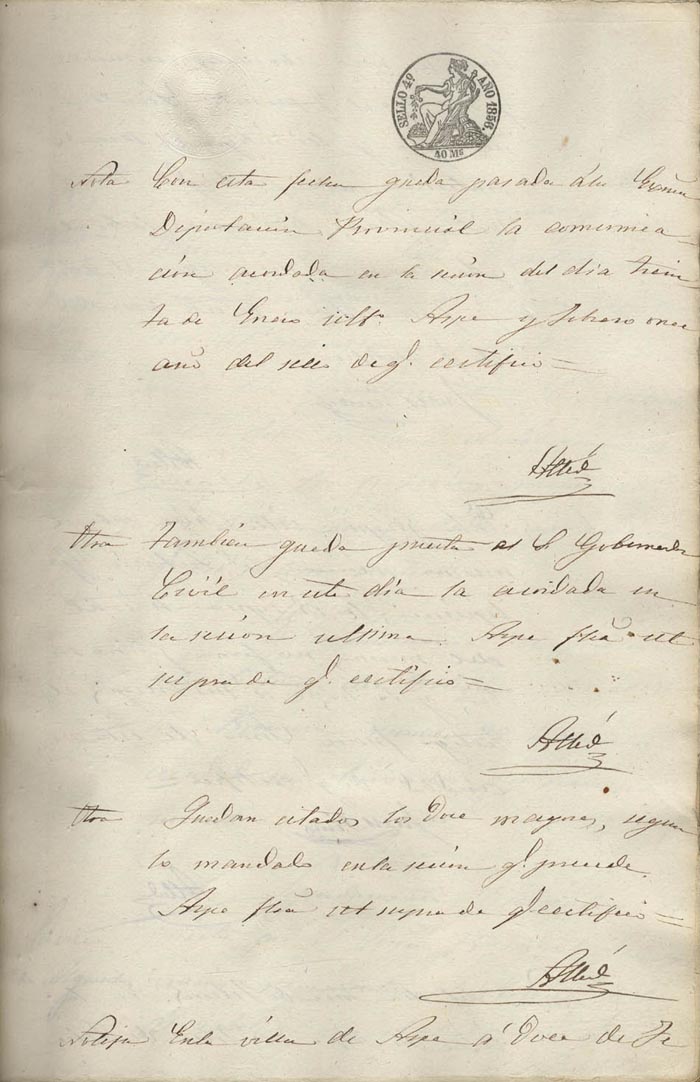 SELLO 4º AÑO 1856.
40 Ms
Nota Con esta fecha queda pasada á la Excma
Diputación Provincial la comunica-
ción acordada en la seción del día trein
ta de Enero Aspe y Febrero once
año del seis de q.' certifico =
Otra También queda puesta al S. Gobernador
Civil en este día la acordada en
la seción ultima. Aspe fha ut
supra de q.' certifico =
Otra Quedan citados los doce mayores, segun
lo mandado en la seción q.' precede.
Aspe fha ut supra de q.' certifico =
En la villa de Aspe á doce de Fe